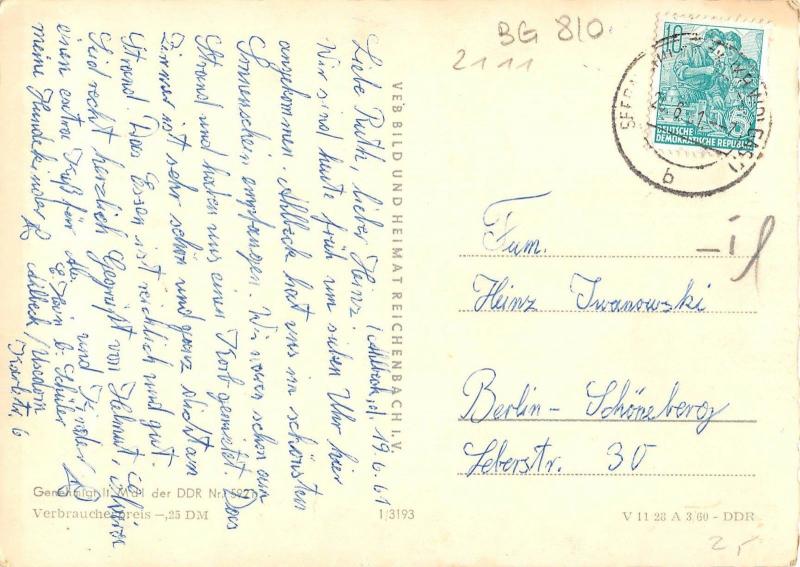 BG 8/0
2111
10
5
DEUTSCHE
DEMOKRATISCHE REPUBLIK
SEEBAD
b
Ahlbeck, d. 19.6.61
Liebe Ruth, lieber Heinz!
Wir sind heute früh um sieben Uhr hier
angekommen. Ahlbeck hat uns im schönsten
Sonnenschein empfangen. Wir waren schon am
Strand und haben uns einen Korb gemietet. Das
Zimmer ist sehr schön und ganz dicht am
Strand. Das Essen ist reichlich und gut.
Seid recht herzlich Gegrüßt von Helmut,
und Kinder
einen extra Kuß für
meine Hundekinder
b. Schüler
Ahlbeck/Usedom
6
VEB BILD UND HEIMAT REICHENBACH I. V.
Fam.
Heinz Iwanowski
Berlin-Schöneberg
Leberstr. 30
Genehmigt lt. MdI der DDR Nr.
Verbraucherpreis -,25 DM
1/3193
V 11 28 A 3/60 - DDR